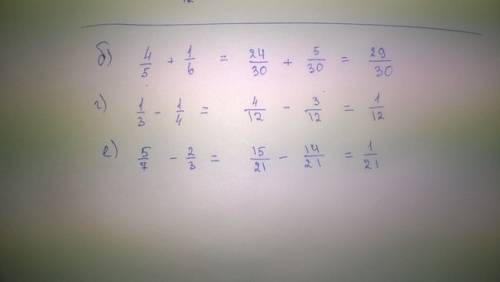 б) 4/5 + 1/6 = 24/30 + 5/30 = 29/30
г) 1/3 - 1/4 = 4/12 - 3/12 = 1/12
е) 5/7 - 2/3 = 15/21 - 14/21 = 1/21